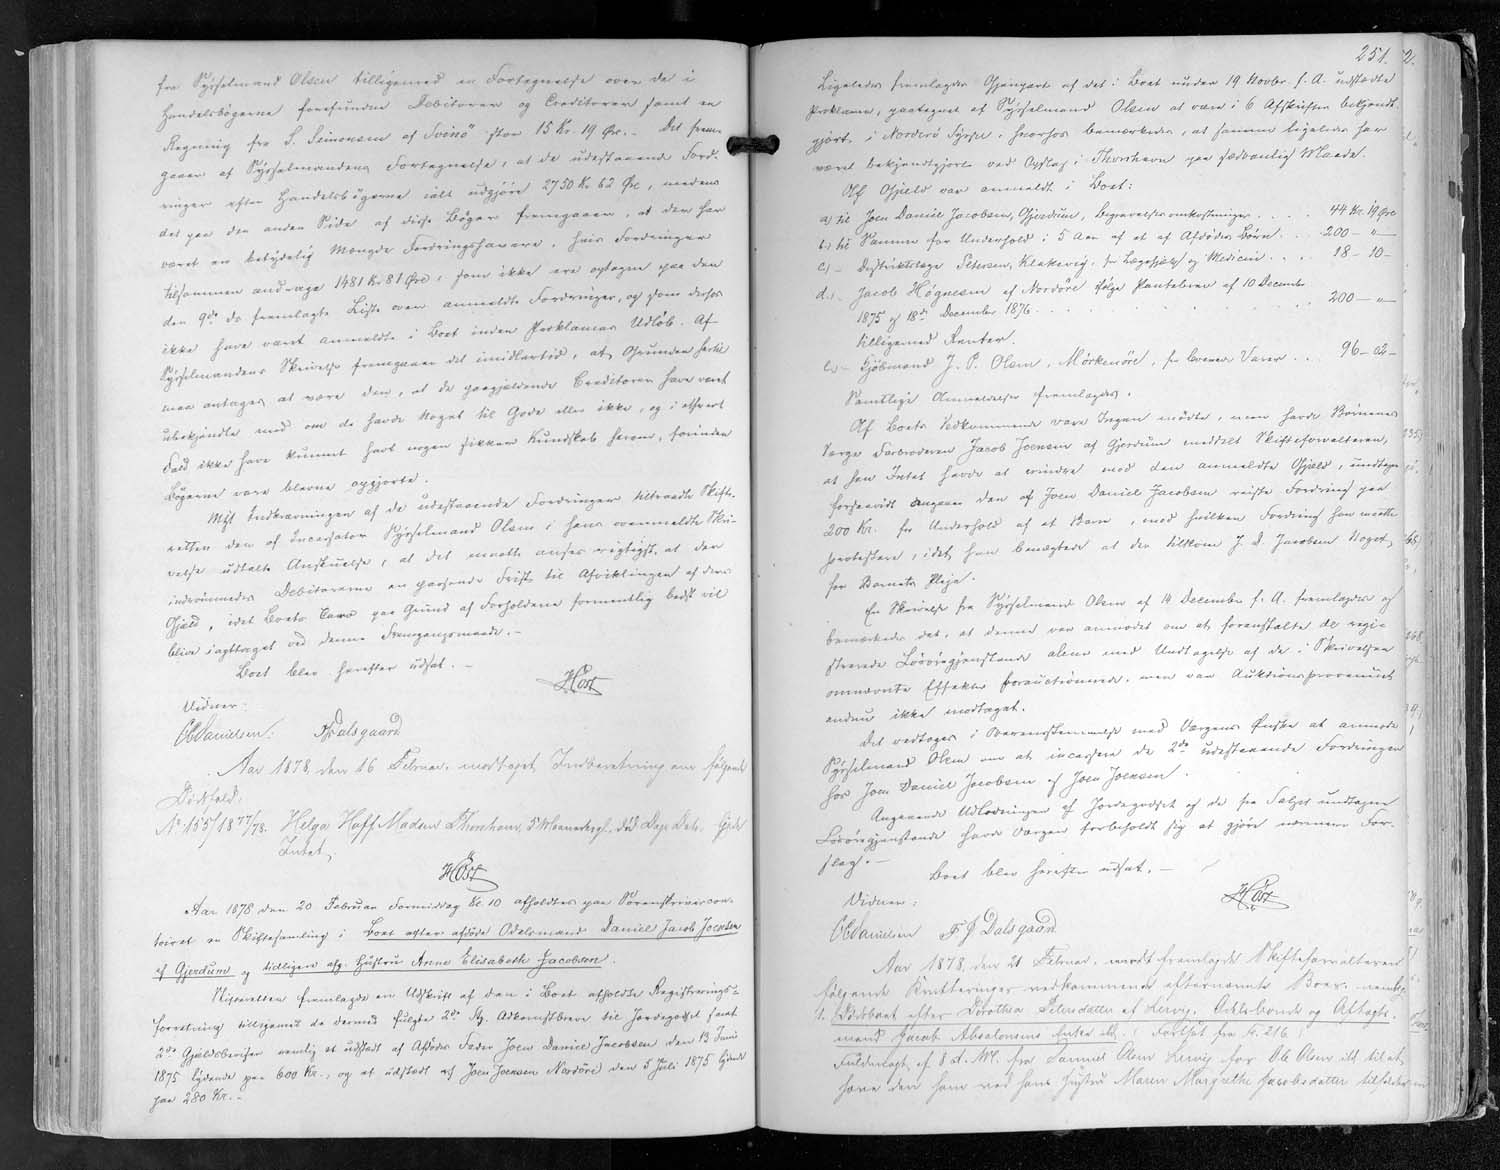 fra Sysselmand Olsen tilligemed en Fortegnelse over de i
Handelsbøgerne forefundne Debitorer og Creditorer samt en
Regning fra S. Simonsen af Svinö stor 15 Kr. 19 Øre. – Det frem-
gaaer af Sysselmandens Fortegnelse, at de udestaaende Ford-
ringer efter Handelsbøgerne ialt udgjøre 2750 Kr 62 Øre, medens
det paa den anden Side af disse Bøger fremgaaer, at der har
været en betydelig Mængde Fordringshavere, hvis Fordringer
tilsammen andrage 1481 Kr 81 Øre, som ikke ere optagne paa den
den 9de ds fremlagte Liste over anmeldte Fordringer, og som derfor
ikke have været anmeldte i Boet inden Proklamas Udløb. Af
Sysselmandens Skrivelse fremgaaer det imidlertid, at Grunden hertil
maa antages at være den, at de paagjældende Creditorer have været
ubekjendte med om de havde Noget til Gode eller ikke, og i ethvert
Fald ikke have kunnet havt nogen sikker Kundskab herom, forinden
Bøgerne vare blevne opgjorte.
Mht Inddrivningen af de udestaaende Fordringer tiltraadte Skifte-
retten den af Incassator Sysselmand Olsen i hans ovenmeldte Skri-
velse udtalte Anskuelse, at det maatte anses rigtigst, at der
indrømmedes Debitorerne en passende Frist til Afviklingen af deres
Gjæld, idet Boets Tarv paa Grund af Forholdene formentlig bedst vil
blive iagttaget ved denne Fremgangsmaade. –
Boet blev herefter udsat. –
HØst
Vidner:
O C Danielsen. F J Dalsgaard
Aar 1878, den 16 Februar, modtoges Indberetning om følgende
Dødsfald:
No 155/1877/78. Helga Hoff Madsen Thorshavn, Død
Intet.
HØst
Aar 1878 den 20 Februar Formiddag Kl. 10 afholdtes paa Sorenskrivercon-
toiret en Skiftesamling i Boet efter afdøde Odelsmand Daniel Jacob Joensen
af Gjerdum og tidligere afg. Hustru Anne Elisabeth Jacobsen.
Skifteretten fremlagde en Udskrift af den i Boet afholdte Registrerings-
forretning tilligemed de dermed fulgte 2de St. Adkomstbreve til Jordegodset samt
2de Gjældsbeviser nemlig et udstedt af Afdødes Fader Joen Daniel Jacobsen den 13 Juni
1875 lydende paa 600 Kr., og et udstedt af Joen Joensen Nordöre den 5 Juli 1875 lydende
paa 280 Kr. –
251.
Ligeledes fremlagdes Gjenpart af det i Boet under 19 Novbr. f. A. udstedte
Proklama, paategnet af Sysselmand Olsen at være i 6 Afskrifter bekjendt-
gjort i Norderö Syssel, hvorhos bemærkedes, at samme ligeledes har
været bekjendtgjort ved Opslag i Thorshavn paa sædvanlig Maade.
Af Gjæld var anmeldt i Boet:
a) til Joen Daniel Jacobsen, Gjerdum, Begravelsesomkostninger . . . . 44 Kr. 19 Øre
b) til Samme for Underhold i 5 Aar af et af Afdødes Børn . . . 200 – " –
c) – Distriktslæge Petersen, Klaksvig, for Lægehjælp og Medicin . . . . 18 – 10 –
d) – Jacob Høgnesen af Nordöre ifølge Pantebrev af 10 December
1875 og 18de December 1876 . . . . 200 – " –
tilligemed Renter.
e) – Kjöbmand J. P. Olsen, Mörkenöre, for leverede Varer . . 96 – 02 –
Samtlige Anmeldelser fremlagdes.
Af Boets Vedkommende vare Ingen mødte, men havde Børnenes
Værge Farbroderen Jacob Joensen af Gjerdum meddelt Skifteforvalteren,
at han Intet havde at erindre mod den anmeldte Gjæld, undtagen
forsaavidt angaaer den af Joen Daniel Jacobsen reiste Fordring paa
200 Kr. for Underhold af et Barn, mod hvilken Fordring han maatte
protestere, idet han benægtede at der tilkom J. D. Jacobsen Noget
for Barnets Pleje.
En Skrivelse fra Sysselmand Olsen af 14 December f. A. fremlagdes og
bemærkedes det, at denne var anmodet om at foranstalte de regi-
strerede Løsøregjenstande alene med Undtagelse af de i Skrivelsen
omnævnte Effekter forauctionerede, men var Auktionsprovenuet
endnu ikke modtaget.
Det vedtoges i Overensstemmelse med Værgens Ønske at anmode
Sysselmand Olsen om at incassere de 2de udestaaende Fordringer
hos Joen Daniel Jacobsen og Joen Joensen.
Angaaende Udlodningen af Jordegodset og de fra Salget undtagne
Løsøregjenstande havde Værgen forbeholdt sig at gjöre nærmere For-
slag. –
Boet blev herefter udsat. –
HØst
Vidner:
O C Danielsen F J Dalsgaard
Aar 1878, den 21 Februar, fremlagde Skifteforvalteren
følgende Kvitteringer vedkommende efternævnte Boer, nemlig:
1. Dødsboet efter Dorothea Petersdatter af Lervig, Odelsbonde og Aftægts-
mand Jacob Absalonsens Enke ibd. (Fortsat fra S. 216)
Fuldmagt af 8 d. M. fra Samuel Olsen Lervig for Ole Olsen ibd til at
hæve den ham ved hans Hustru Maren Margrethe Jacobsdatter